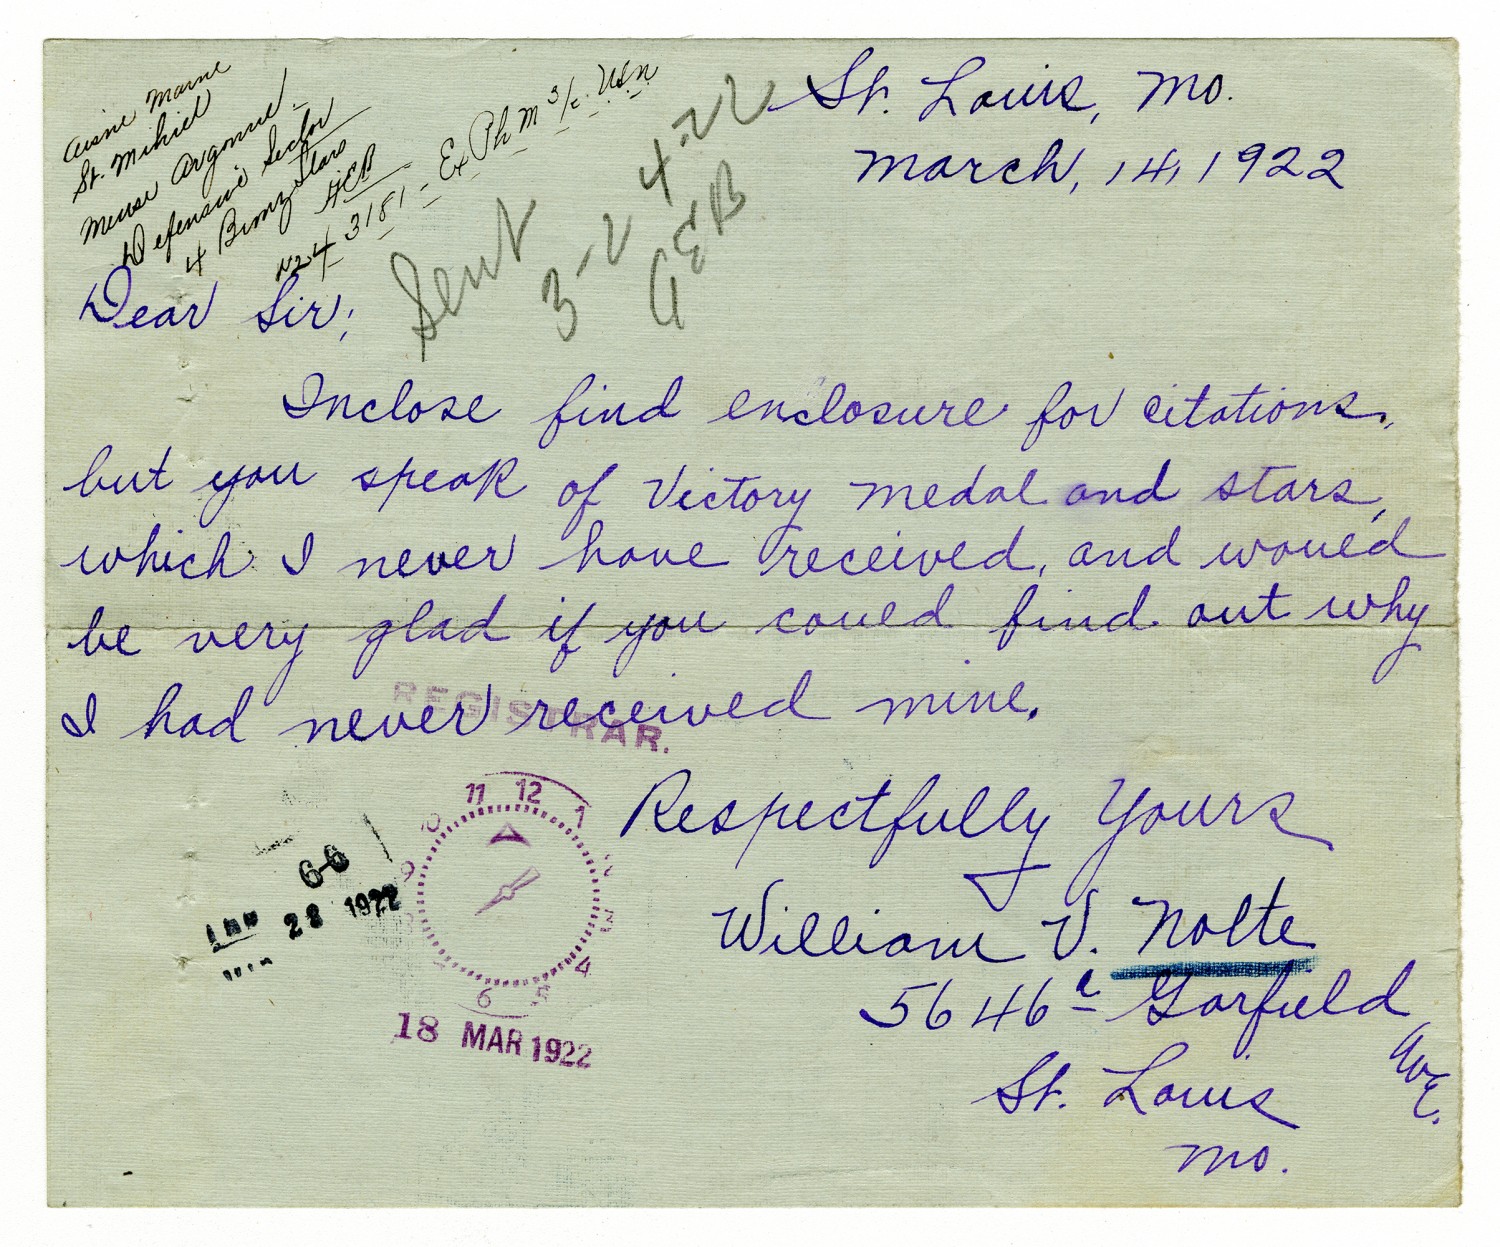 Aisne Marne
St. Mihiel
Meuse Argonne
Defensive Sector
4 Bronze Stars
GEB
3181 - Ex Ph M 3/c. USN
Sent
3-24-22
GEB
St. Louis, Mo.
March, 14, 1922
Dear Sir;
Inclose find enclosure for citations,
but you speak of Victory Medal and stars,
which I never have received, and would
be very glad if you could find out why
I had never received mine.
REGISTRAR.
Respectfully Yours
William V. Nolte
5646a Garfield Ave.
St. Louis
Mo.
11 12 1 2 3 4 5 6 9 10
18 MAR 1922
66
28 1922